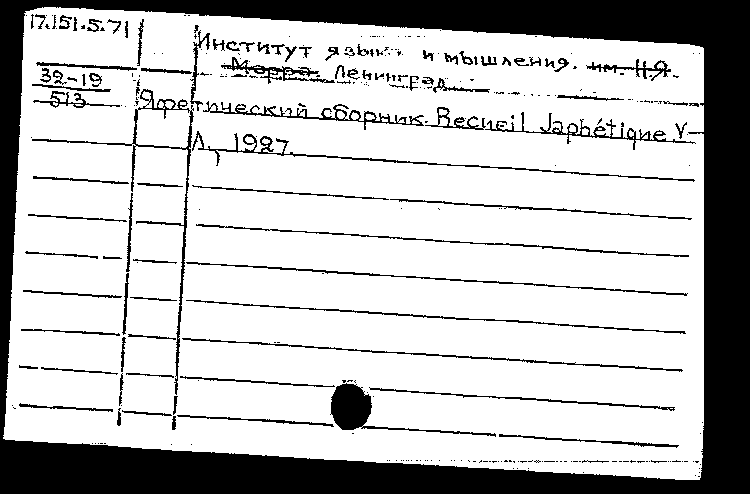 17.151.5.71
Институт языка и мышления. им. Н.Я.
Марра. Ленинград.
32-19
513
Яфетический сборник. Recueil Japhétique V-
Л., 1927.